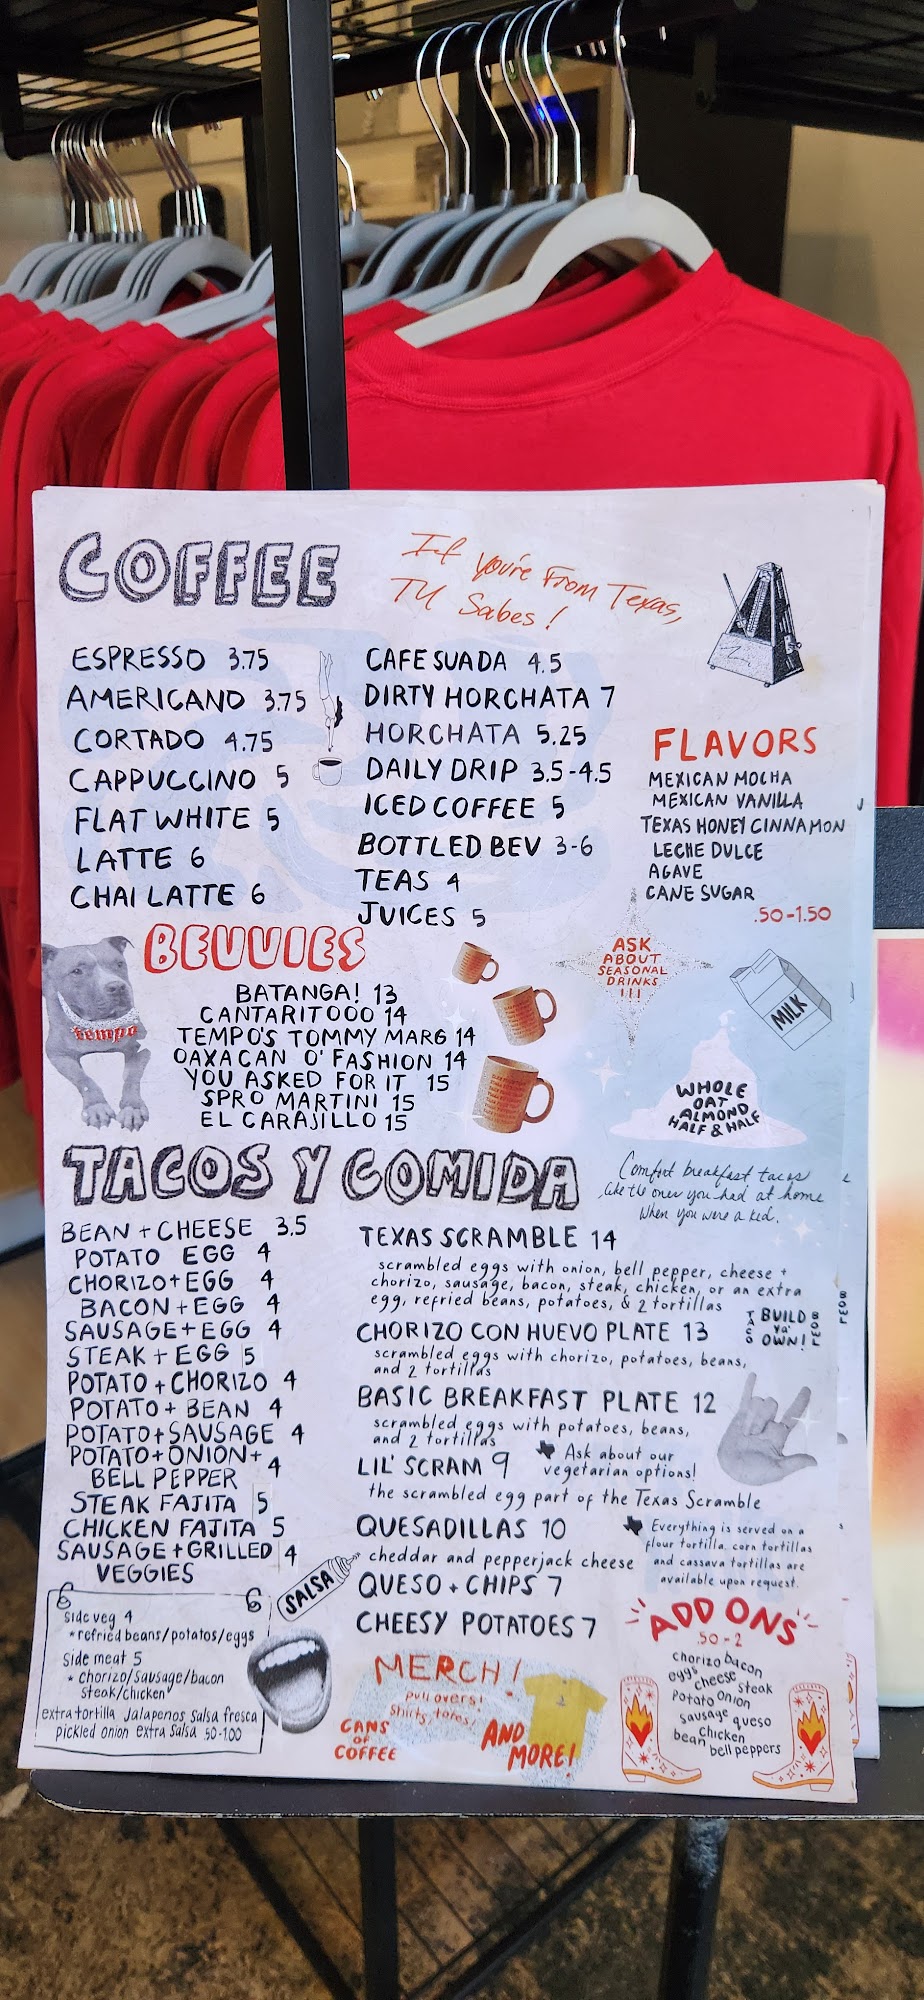 COFFEE
If you're From Texas,
TU Sabes!
ESPRESSO 3.75
AMERICANO 3.75
CORTADO 4.75
CAPPUCCINO 5
FLAT WHITE 5
LATTE 6
CHAI LATTE 6
CAFE SUADA 4.5
DIRTY HORCHATA 7
HORCHATA 5.25
DAILY DRIP 3.5-4.5
ICED COFFEE 5
BOTTLED BEV 3-6
TEAS 4
JUICES 5
FLAVORS
MEXICAN MOCHA
MEXICAN VANILLA
TEXAS HONEY CINNAMON
LECHE DULCE
AGAVE
CANE SUGAR
.50-1.50
BEVVIES
tempo
BATANGA! 13
CANTARITOOO 14
TEMPO'S TOMMY MARG 14
OAXACAN O' FASHION 14
YOU ASKED FOR IT 15
SPRO MARTINI 15
EL CARAJILLO 15
ASK
ABOUT
SEASONAL
DRINKS
!!!
MILK
WHOLE
OAT
ALMOND
HALF & HALF
TACOS Y COMIDA
Comfort breakfast tacos
like the ones you had at home
when you were a kid.
BEAN + CHEESE 3.5
POTATO EGG 4
CHORIZO+EGG 4
BACON+EGG 4
SAUSAGE+EGG 4
STEAK + EGG 5
POTATO + CHORIZO 4
POTATO + BEAN 4
POTATO+SAUSAGE 4
POTATO+ONION+
BELL PEPPER 4
STEAK FAJITA 5
CHICKEN FAJITA 5
SAUSAGE+GRILLED 4
VEGGIES
TEXAS SCRAMBLE 14
scrambled eggs with onion, bell pepper, cheese +
chorizo, sausage, bacon, steak, chicken, or an extra
egg, refried beans, potatoes, & 2 tortillas
TACO
BUILD
Ya'
OWN!
BOWL
CHORIZO CON HUEVO PLATE 13
scrambled eggs with chorizo, potatoes, beans,
and 2 tortillas
BASIC BREAKFAST PLATE 12
scrambled eggs with potatoes, beans,
and 2 tortillas
Ask about our
vegetarian options!
LIL' SCRAM 9
the scrambled egg part of the Texas Scramble
QUESADILLAS 10
cheddar and pepperjack cheese
QUESO + CHIPS 7
CHEESY POTATOES 7
Everything is served on a
flour tortilla. corn tortillas
and cassava tortillas are
available upon request.
SALSA
Side veg 4
*refried beans/potatos/eggs
Side meat 5
* chorizo/sausage/bacon
steak/chicken
extra tortilla Jalapenos Salsa fresca
pickled onion extra Salsa .50-1.00
MERCH!
pullovers!
Shirts, totes!
CANS
OF
COFFEE
AND
MORE!
ADD ONS
.50-2
chorizo bacon
eggs cheese steak
potato onion
sausage queso
chicken
bean bell peppers